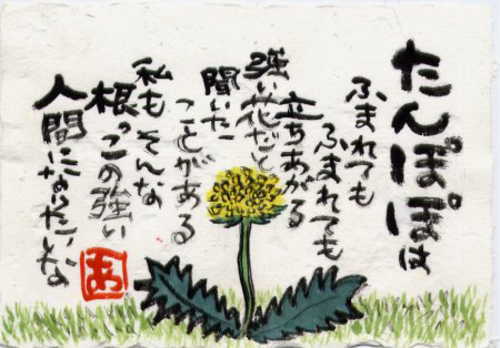 たんぽぽは
ふまれても
ふまれても
立ちあがる
強い花だと
聞いた
ことがある
私もそんな
根っこの強い
人間になりたいな